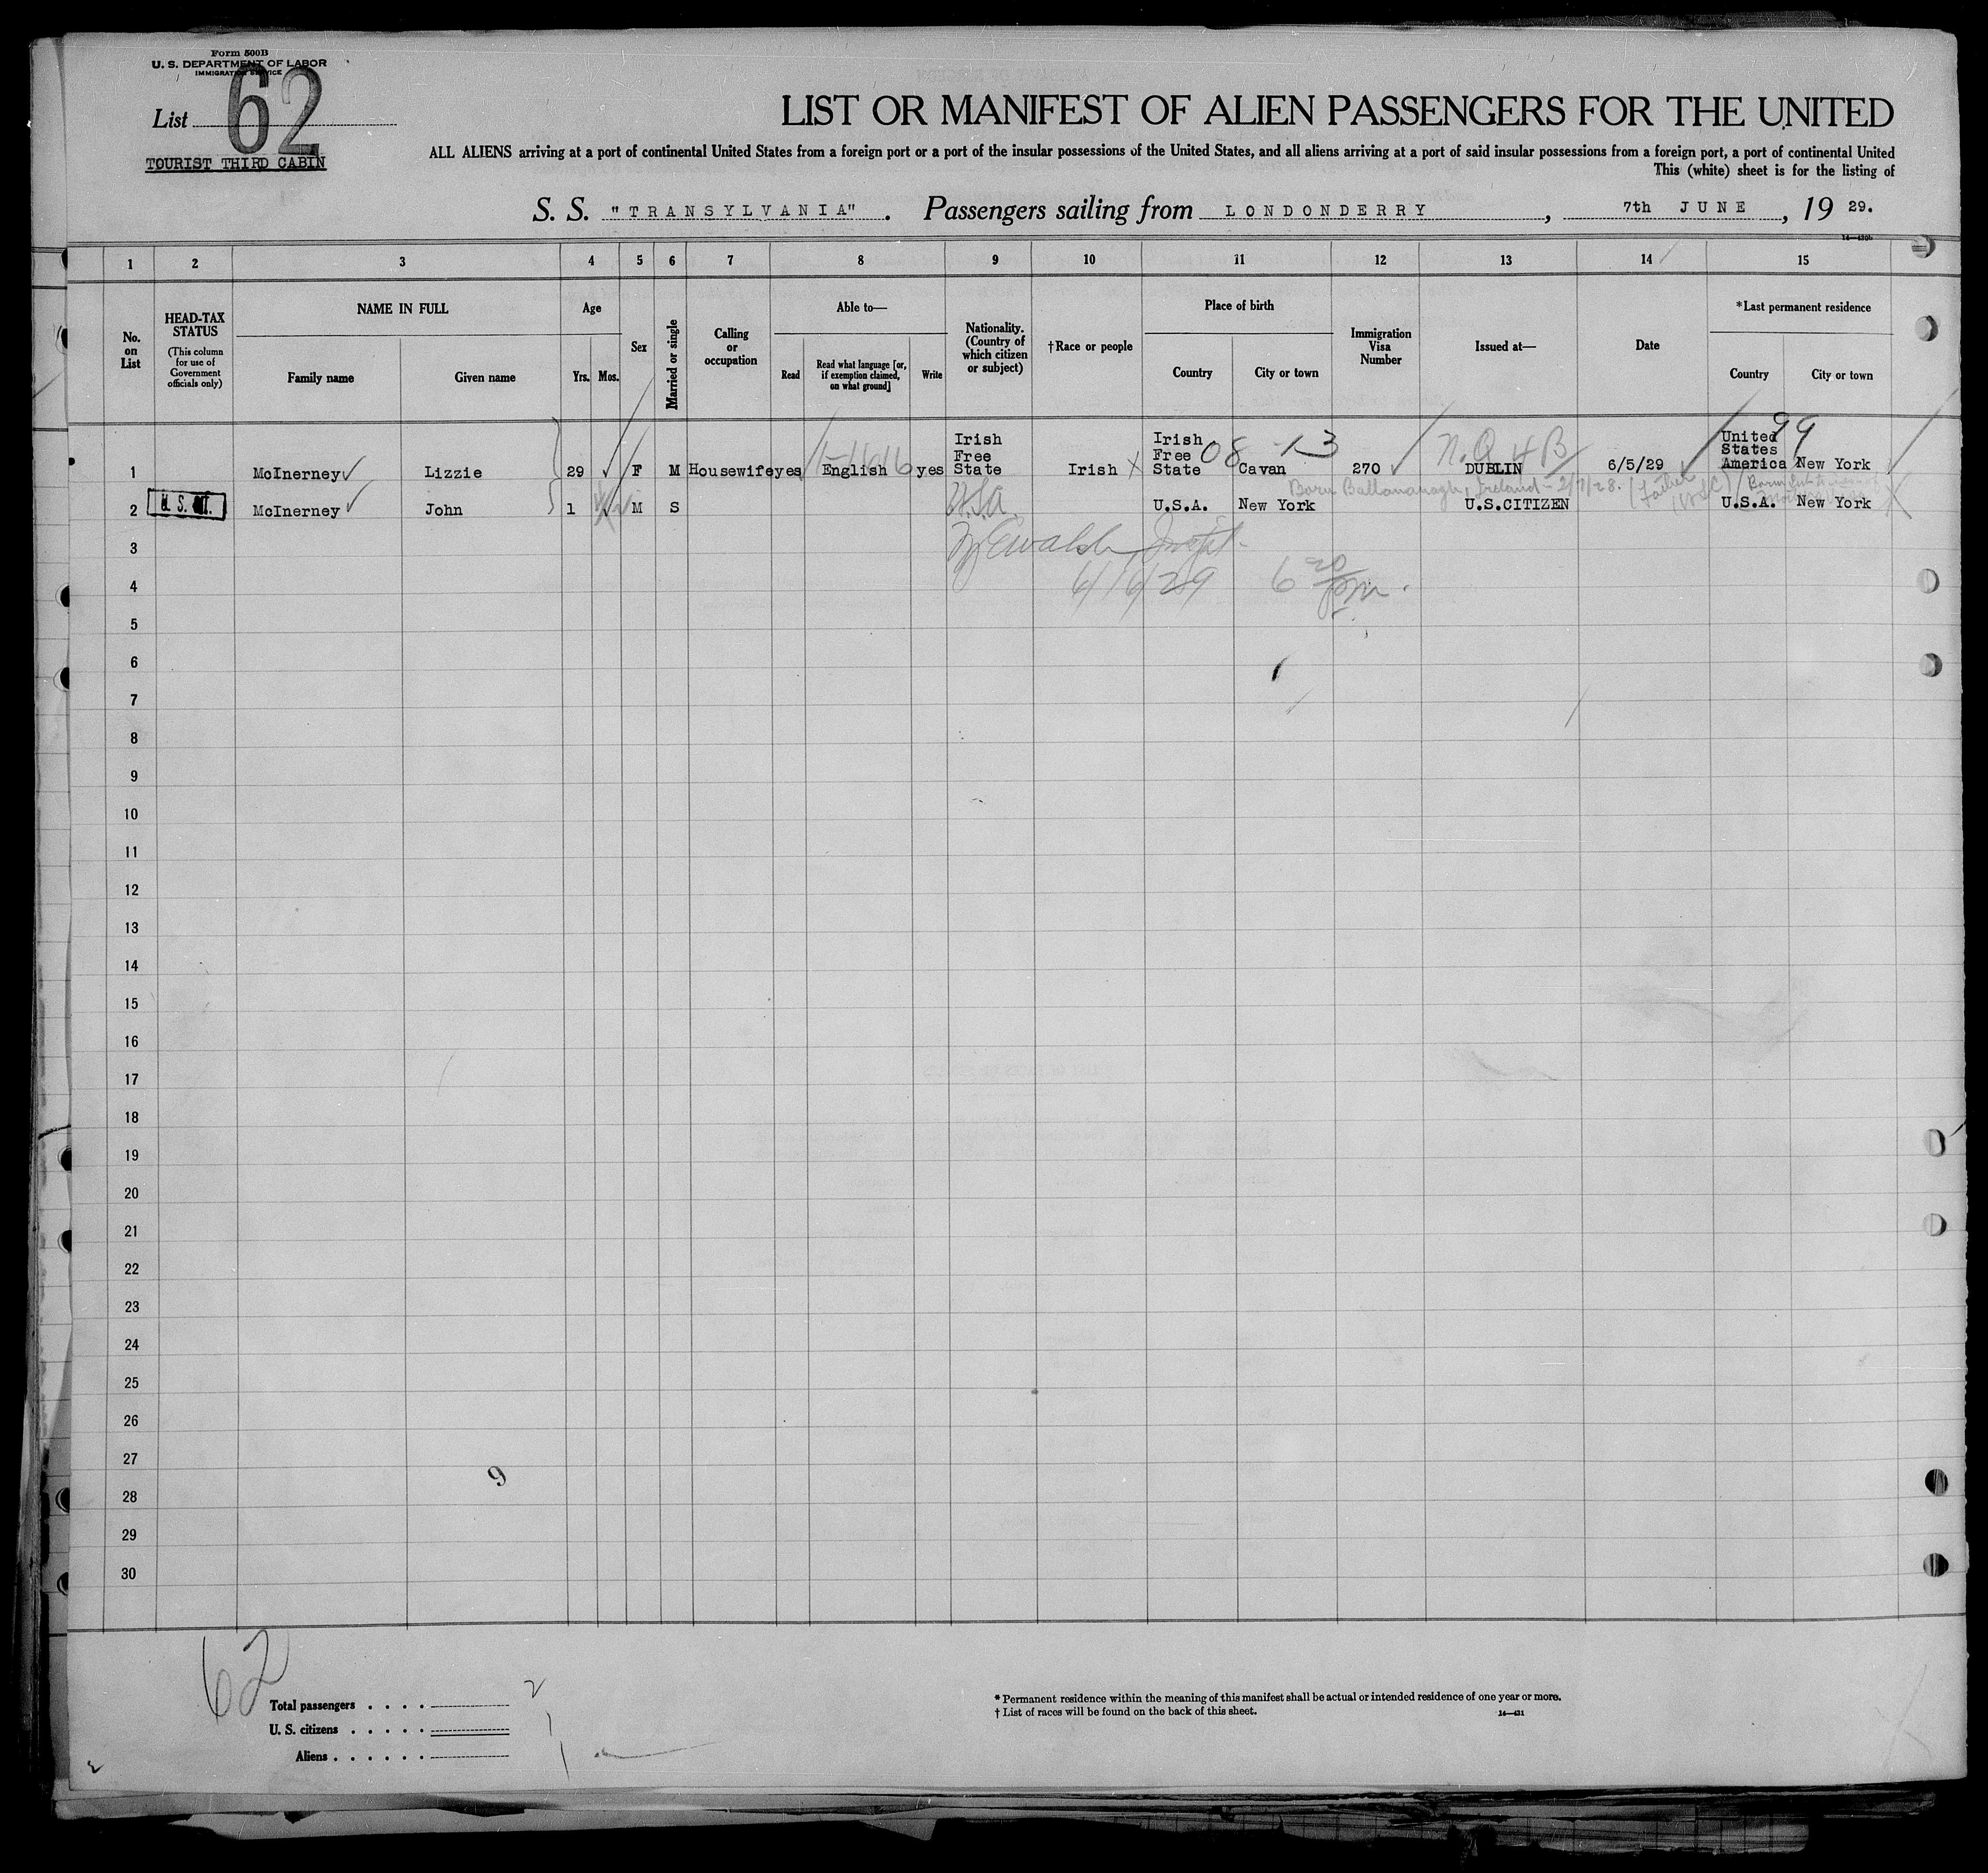 Form 500B
U. S. DEPARTMENT OF LABOR
IMMIGRATION SERVICE
List 62
TOURIST THIRD CABIN
LIST OR MANIFEST OF ALIEN PASSENGERS FOR THE UNITED
ALL ALIENS arriving at a port of continental United States from a foreign port or a port of the insular possessions of the United States, and all aliens arriving at a port of said insular possessions from a foreign port, a port of continental United
This (white) sheet is for the listing of
S. S. "TRANSYLVANIA". Passengers sailing from LONDONDERRY, 7th JUNE, 19 29.
1 2 3 4 5 6 7 8 9 10 11 12 13 14 15
No. on List
HEAD-TAX STATUS
(This column for use of Government officials only)
NAME IN FULL
Family name
Given name
Age
Yrs.
Mos.
Sex
Married or single
Calling or occupation
Able to—
Read
Read what language [or, if exemption claimed, on what ground]
Write
Nationality. (Country of which citizen or subject)
†Race or people
Place of birth
Country
City or town
Immigration Visa Number
Issued at—
Date
*Last permanent residence
Country
City or town
1 McInerney Lizzie 29 F M Housewife yes English yes Irish Free State Irish Irish Free State Cavan 270 DUBLIN 6/5/29 United States America New York
08 13
N.Q 4B
99
2 McInerney John 1 M S U.S.A. U.S.A. New York U.S.CITIZEN U.S.A. New York
Ireland - 2/7/28. (Father
6/16/29 6 20 pm.
3
4
5
6
7
8
9
10
11
12
13
14
15
16
17
18
19
20
21
22
23
24
25
26
27
28
29
30
9
62
Total passengers . . . . 2
U. S. citizens . . . . . 1
Aliens . . . . . . 1
* Permanent residence within the meaning of this manifest shall be actual or intended residence of one year or more.
† List of races will be found on the back of this sheet.
14—431